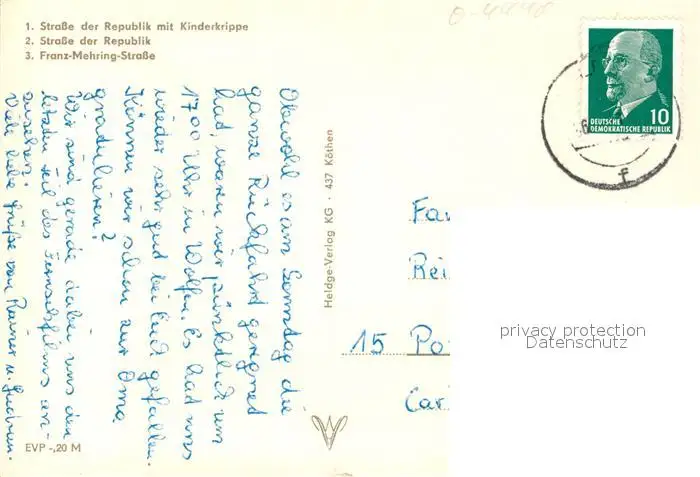 1. Straße der Republik mit Kinderkrippe
2. Straße der Republik
3. Franz-Mehring-Straße
Obwohl es am Sonntag die
ganze Rückfahrt geregnet
hat, waren wir pünktlich um
17.00 Uhr in Wolfen. Es hat uns
wieder sehr gut bei Euch gefallen.
Können wir schon zur Oma
gratulieren?
Wir sind gerade dabei uns den
letzten Teil des Fernsehfilms an-
zusehen.
Viele liebe Grüße von Rainer u. Gudrun.
EVP -,20 M
Heldge-Verlag KG · 437 Köthen
DEUTSCHE
DEMOKRATISCHE REPUBLIK
10
f
Fa
Rei
15 Po
Car
privacy protection
Datenschutz